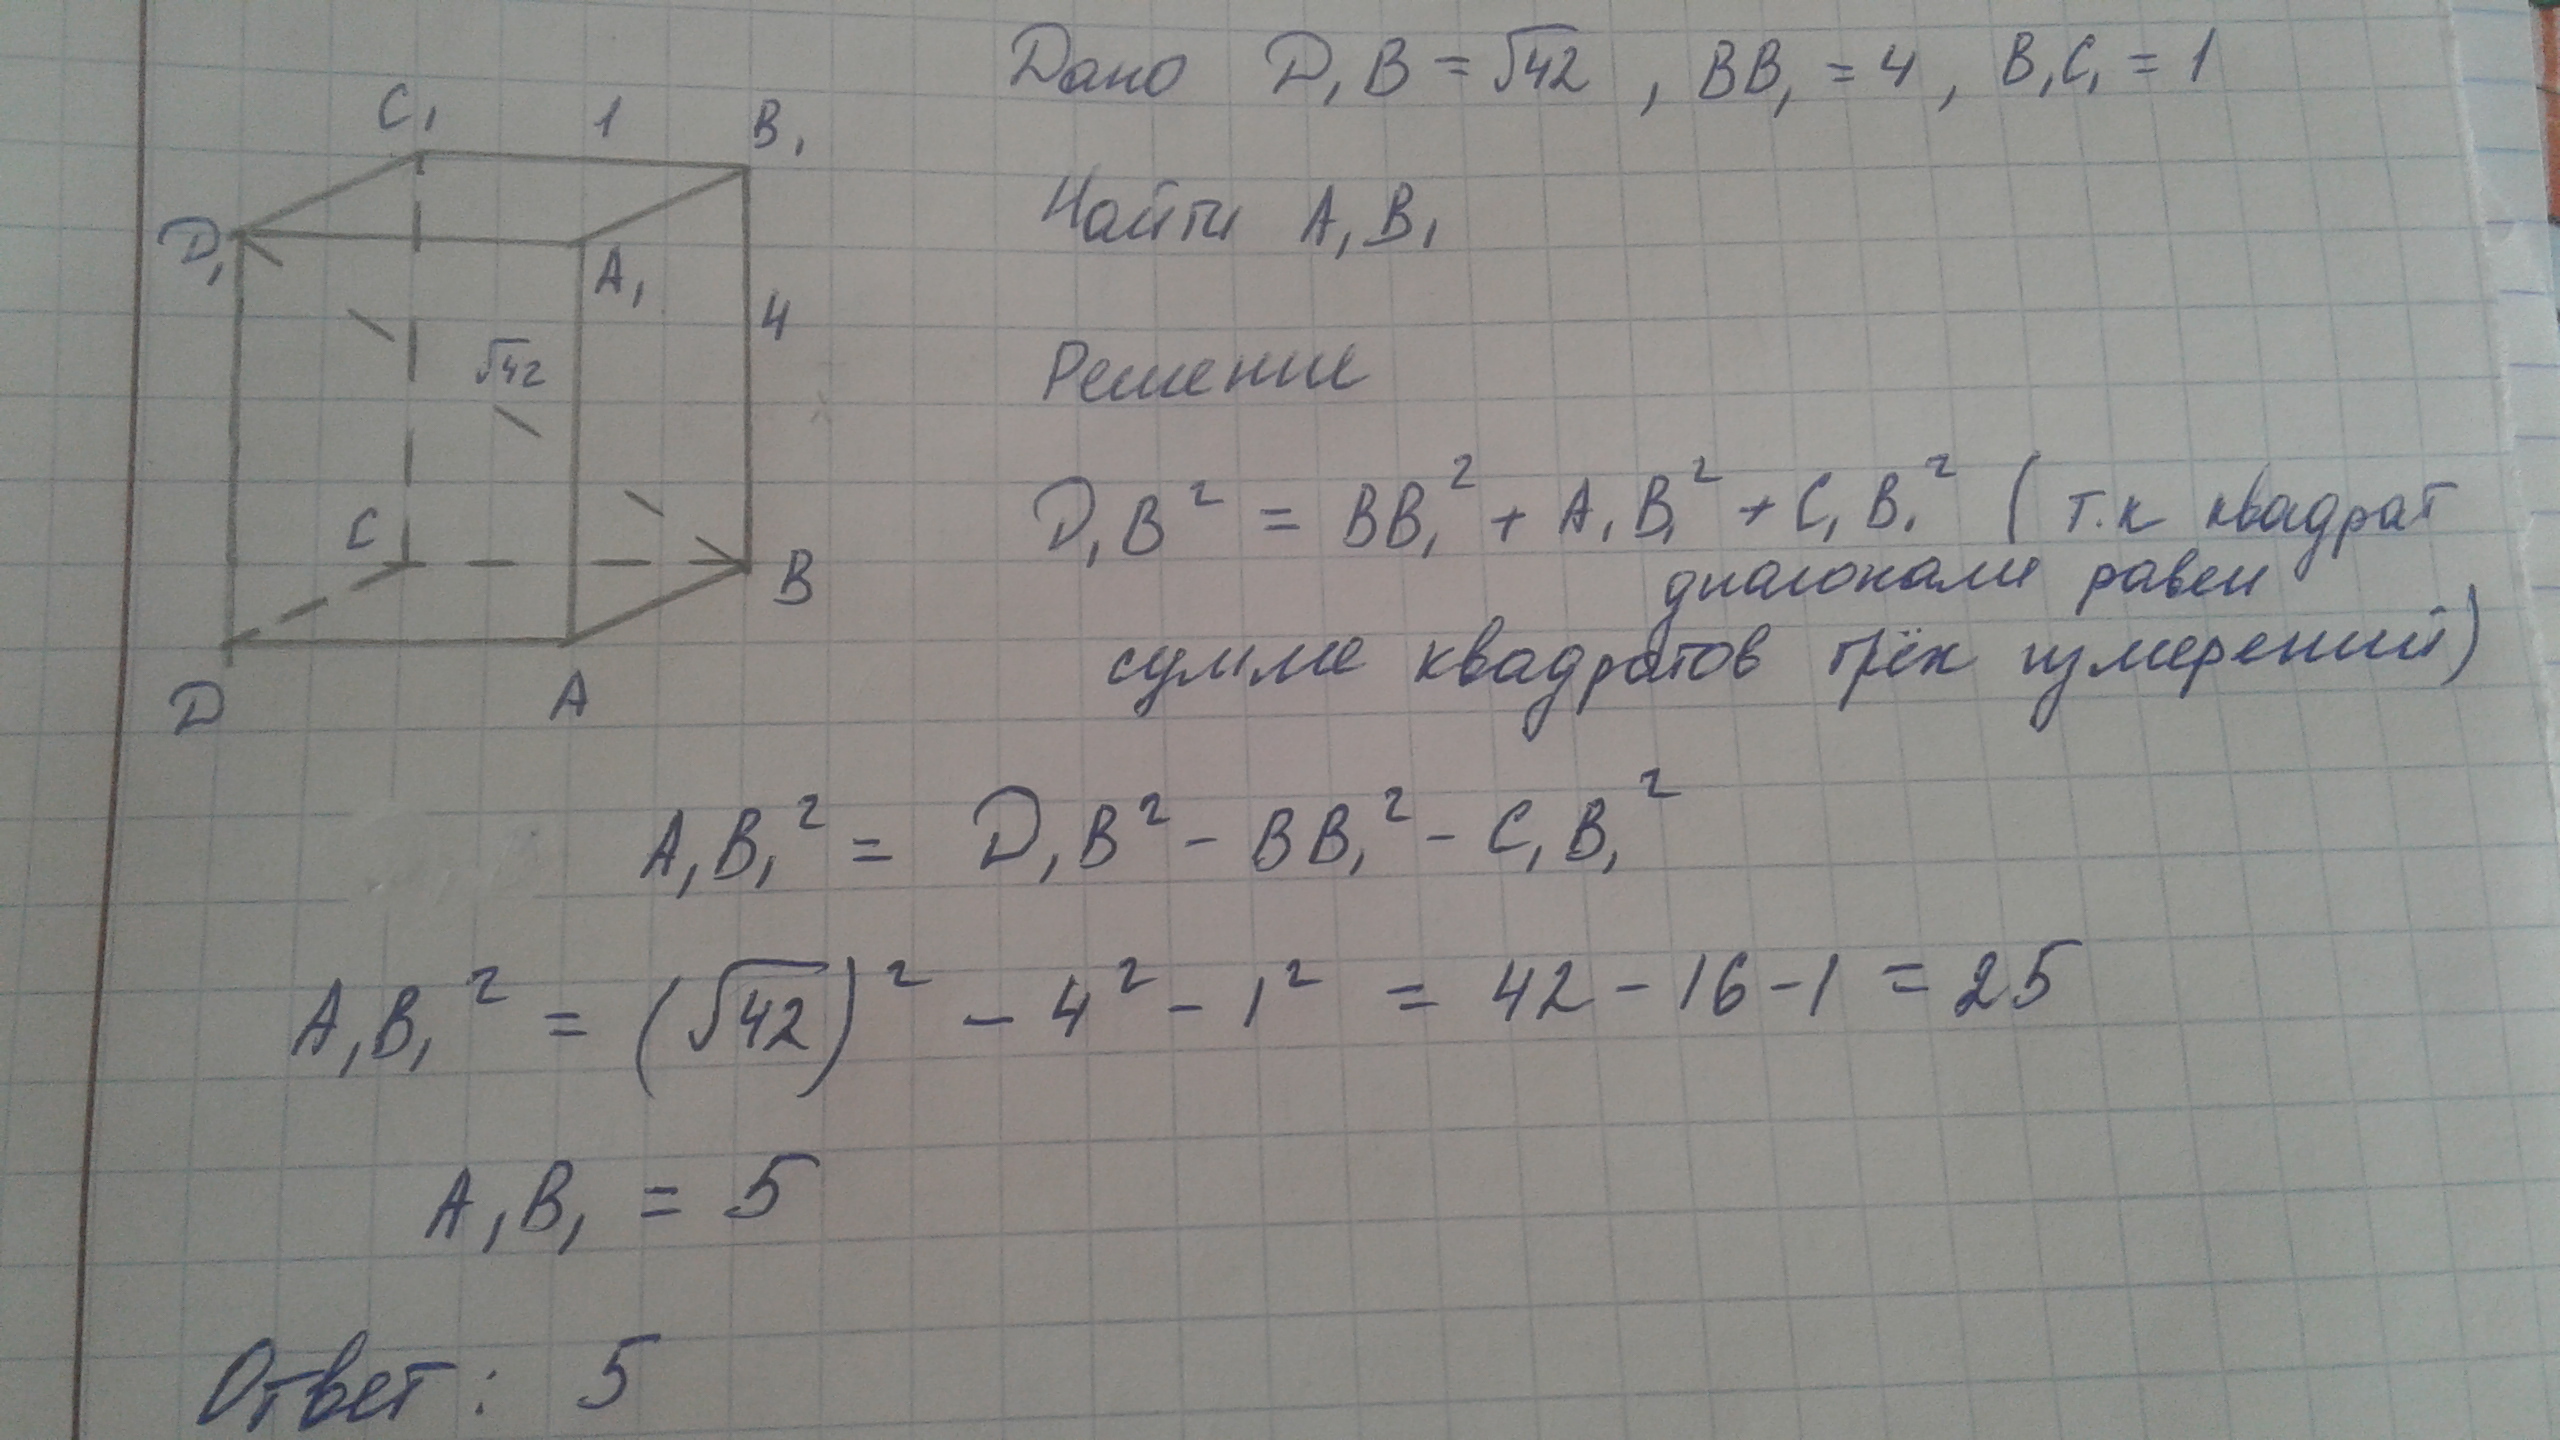 Дано D₁B = √42 , BB₁ = 4 , B₁C₁ = 1
Найти A₁B₁
C₁ 1 B₁
D₁ A₁
4
√42
C B
D A
Решение
D₁B² = BB₁² + A₁B₁² + C₁B₁² ( т.к квадрат
диагонали равен
сумме квадратов трёх измерений)
A₁B₁² = D₁B² - BB₁² - C₁B₁²
A₁B₁² = (√42)² - 4² - 1² = 42 - 16 - 1 = 25
A₁B₁ = 5
Ответ: 5